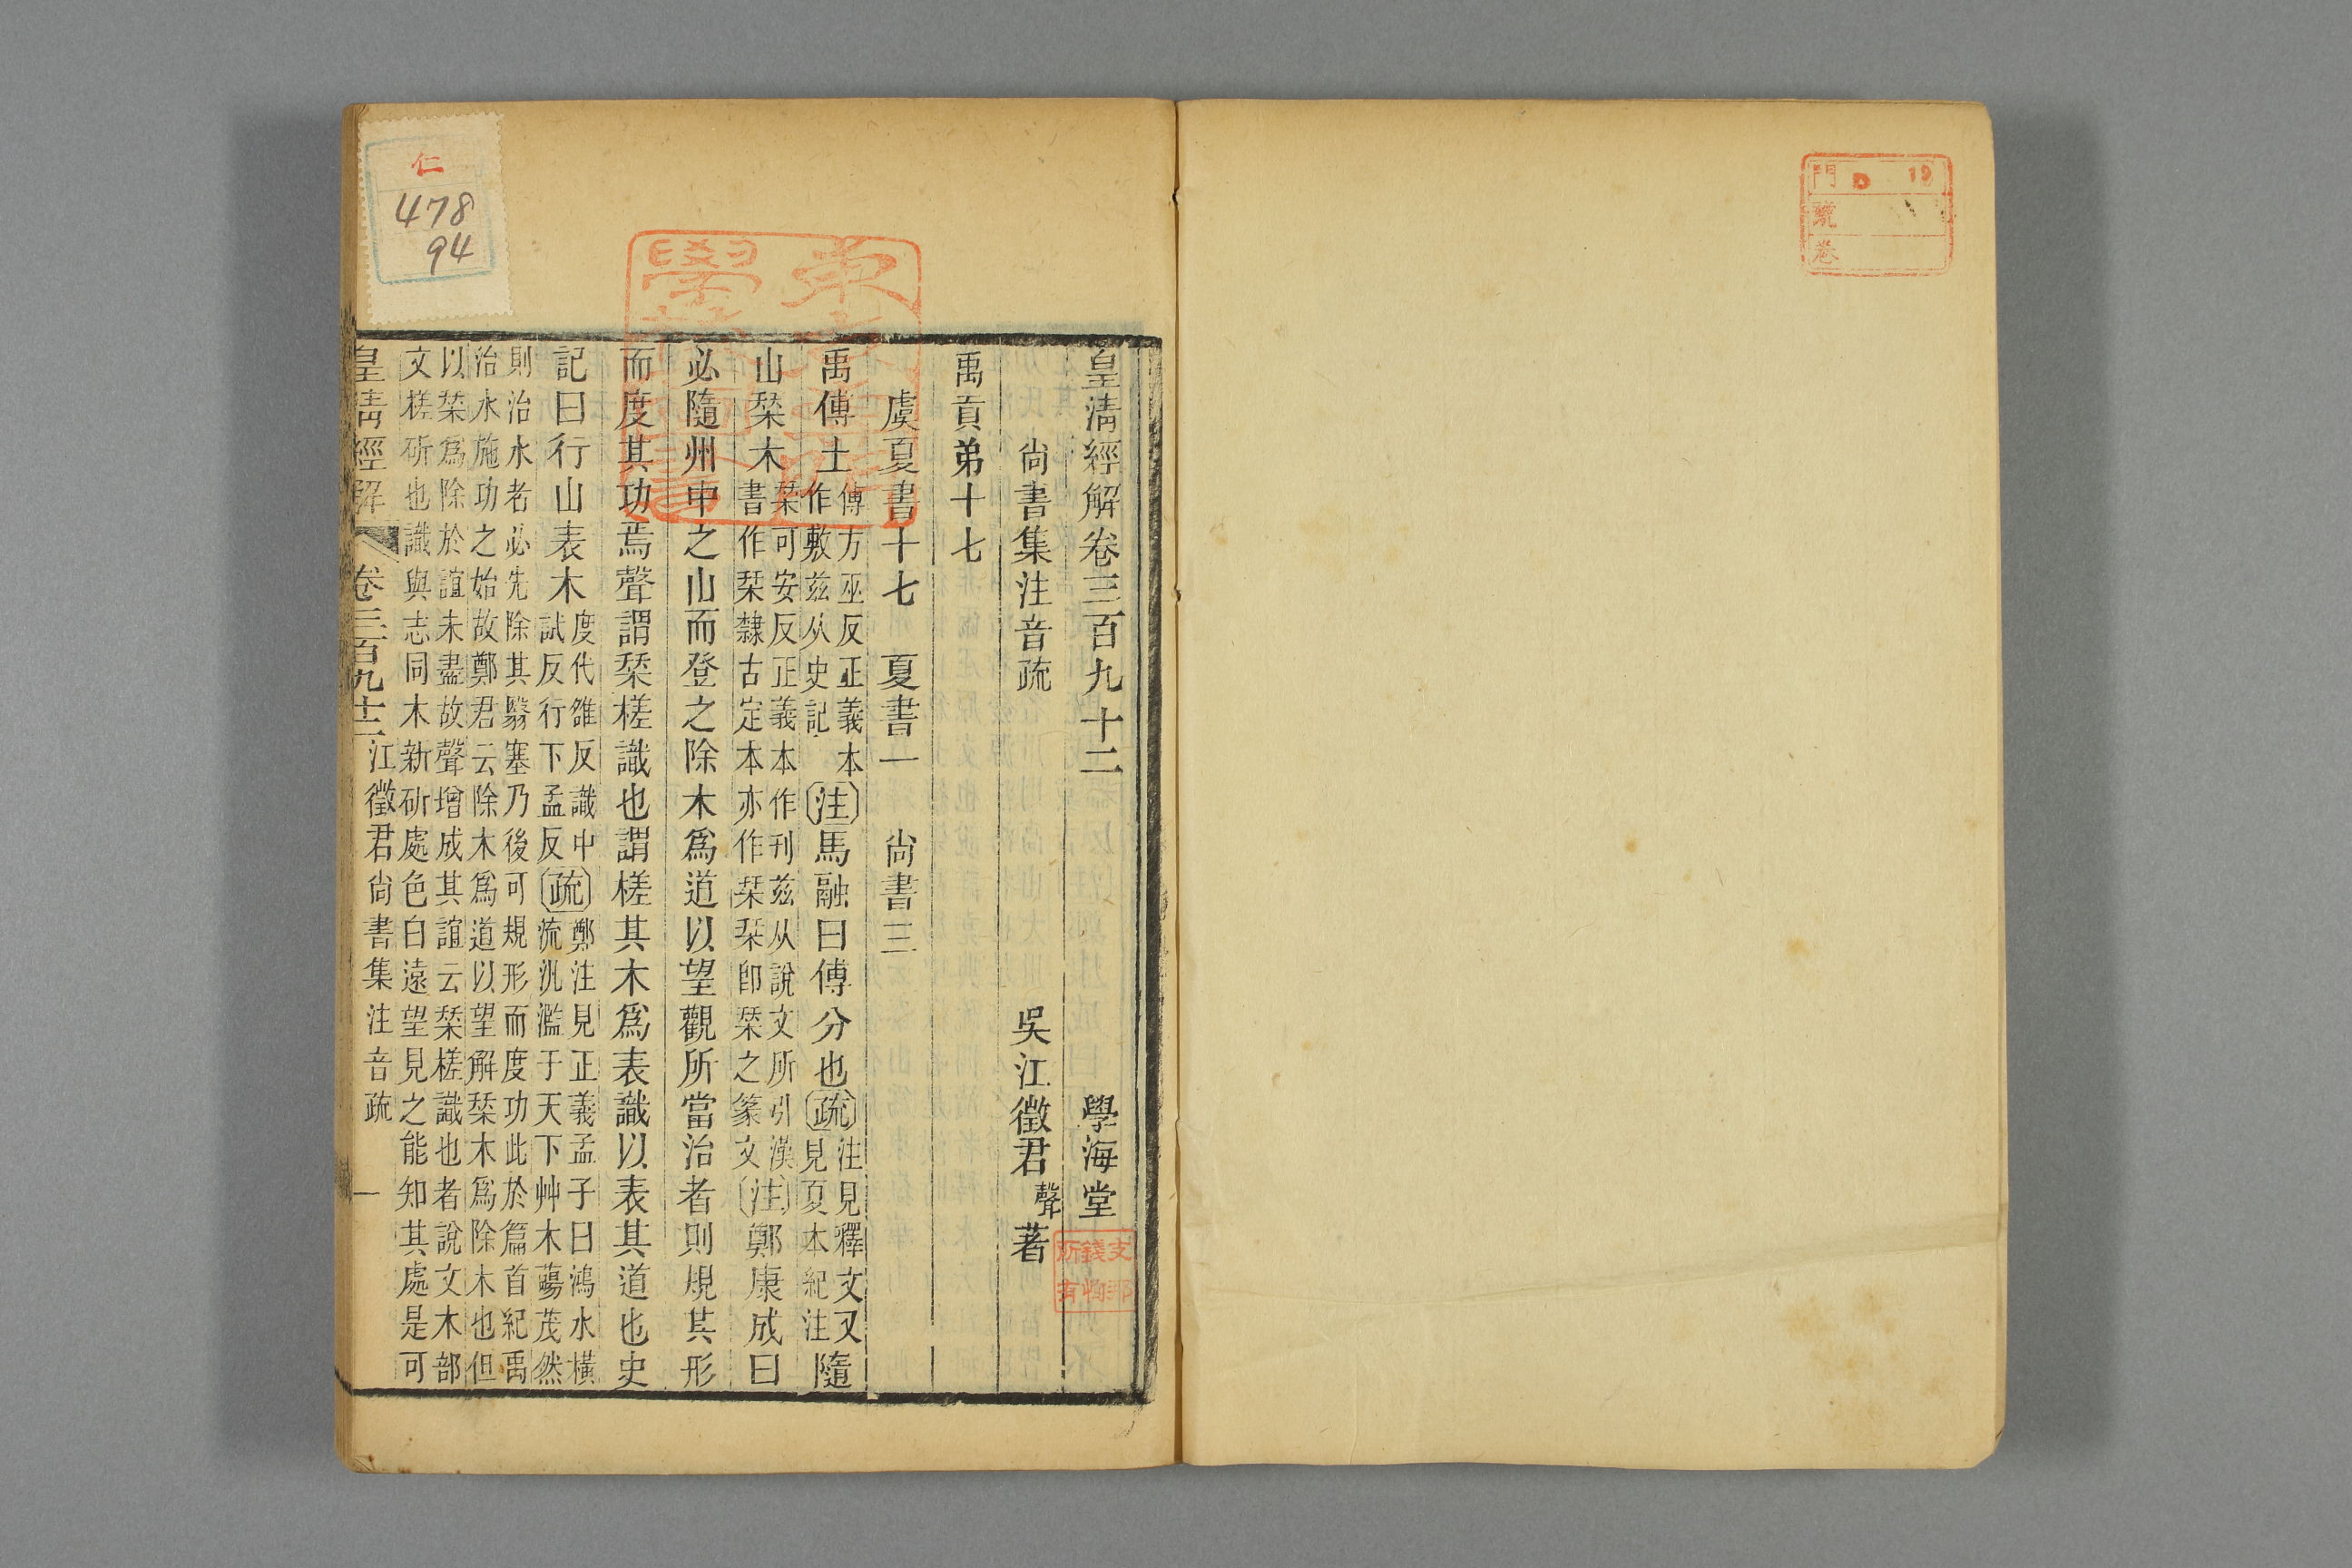 門 D 19
號
卷
皇淸經解卷三百九十二 學海堂
尙書集注音疏 吳江徵君聲著
禹貢弟十七
虞夏書十七 夏書一 尙書三
禹傅土傅方巫反正義本作敷兹从史記注馬融曰傅分也疏注見釋文又見夏本紀注隨
山栞木栞可安反正義本作刊兹从說文所引漢書作栞隸古定本亦作栞栞卽栞之篆文注鄭康成曰
必隨州中之山而登之除木爲道以望觀所當治者則規其形
而度其功焉聲謂栞槎識也謂槎其木爲表識以表其道也史
記曰行山表木度代雒反識中試反行下孟反疏鄭注見正義孟子曰鴻水橫流氾濫于天下艸木蕩茂然
則治水者必先除其翳塞乃後可規形而度功此於篇首紀禹
治水施功之始故鄭君云除木爲道以望解栞木爲除木也但
以栞爲除於誼未盡故聲增成其誼云栞槎識也者說文木部
文槎斫也識與志同木新斫處色白遠望見之能知其處是可
皇淸經解 卷三百九十二 江徵君尙書集注音疏 一
仁
478
94